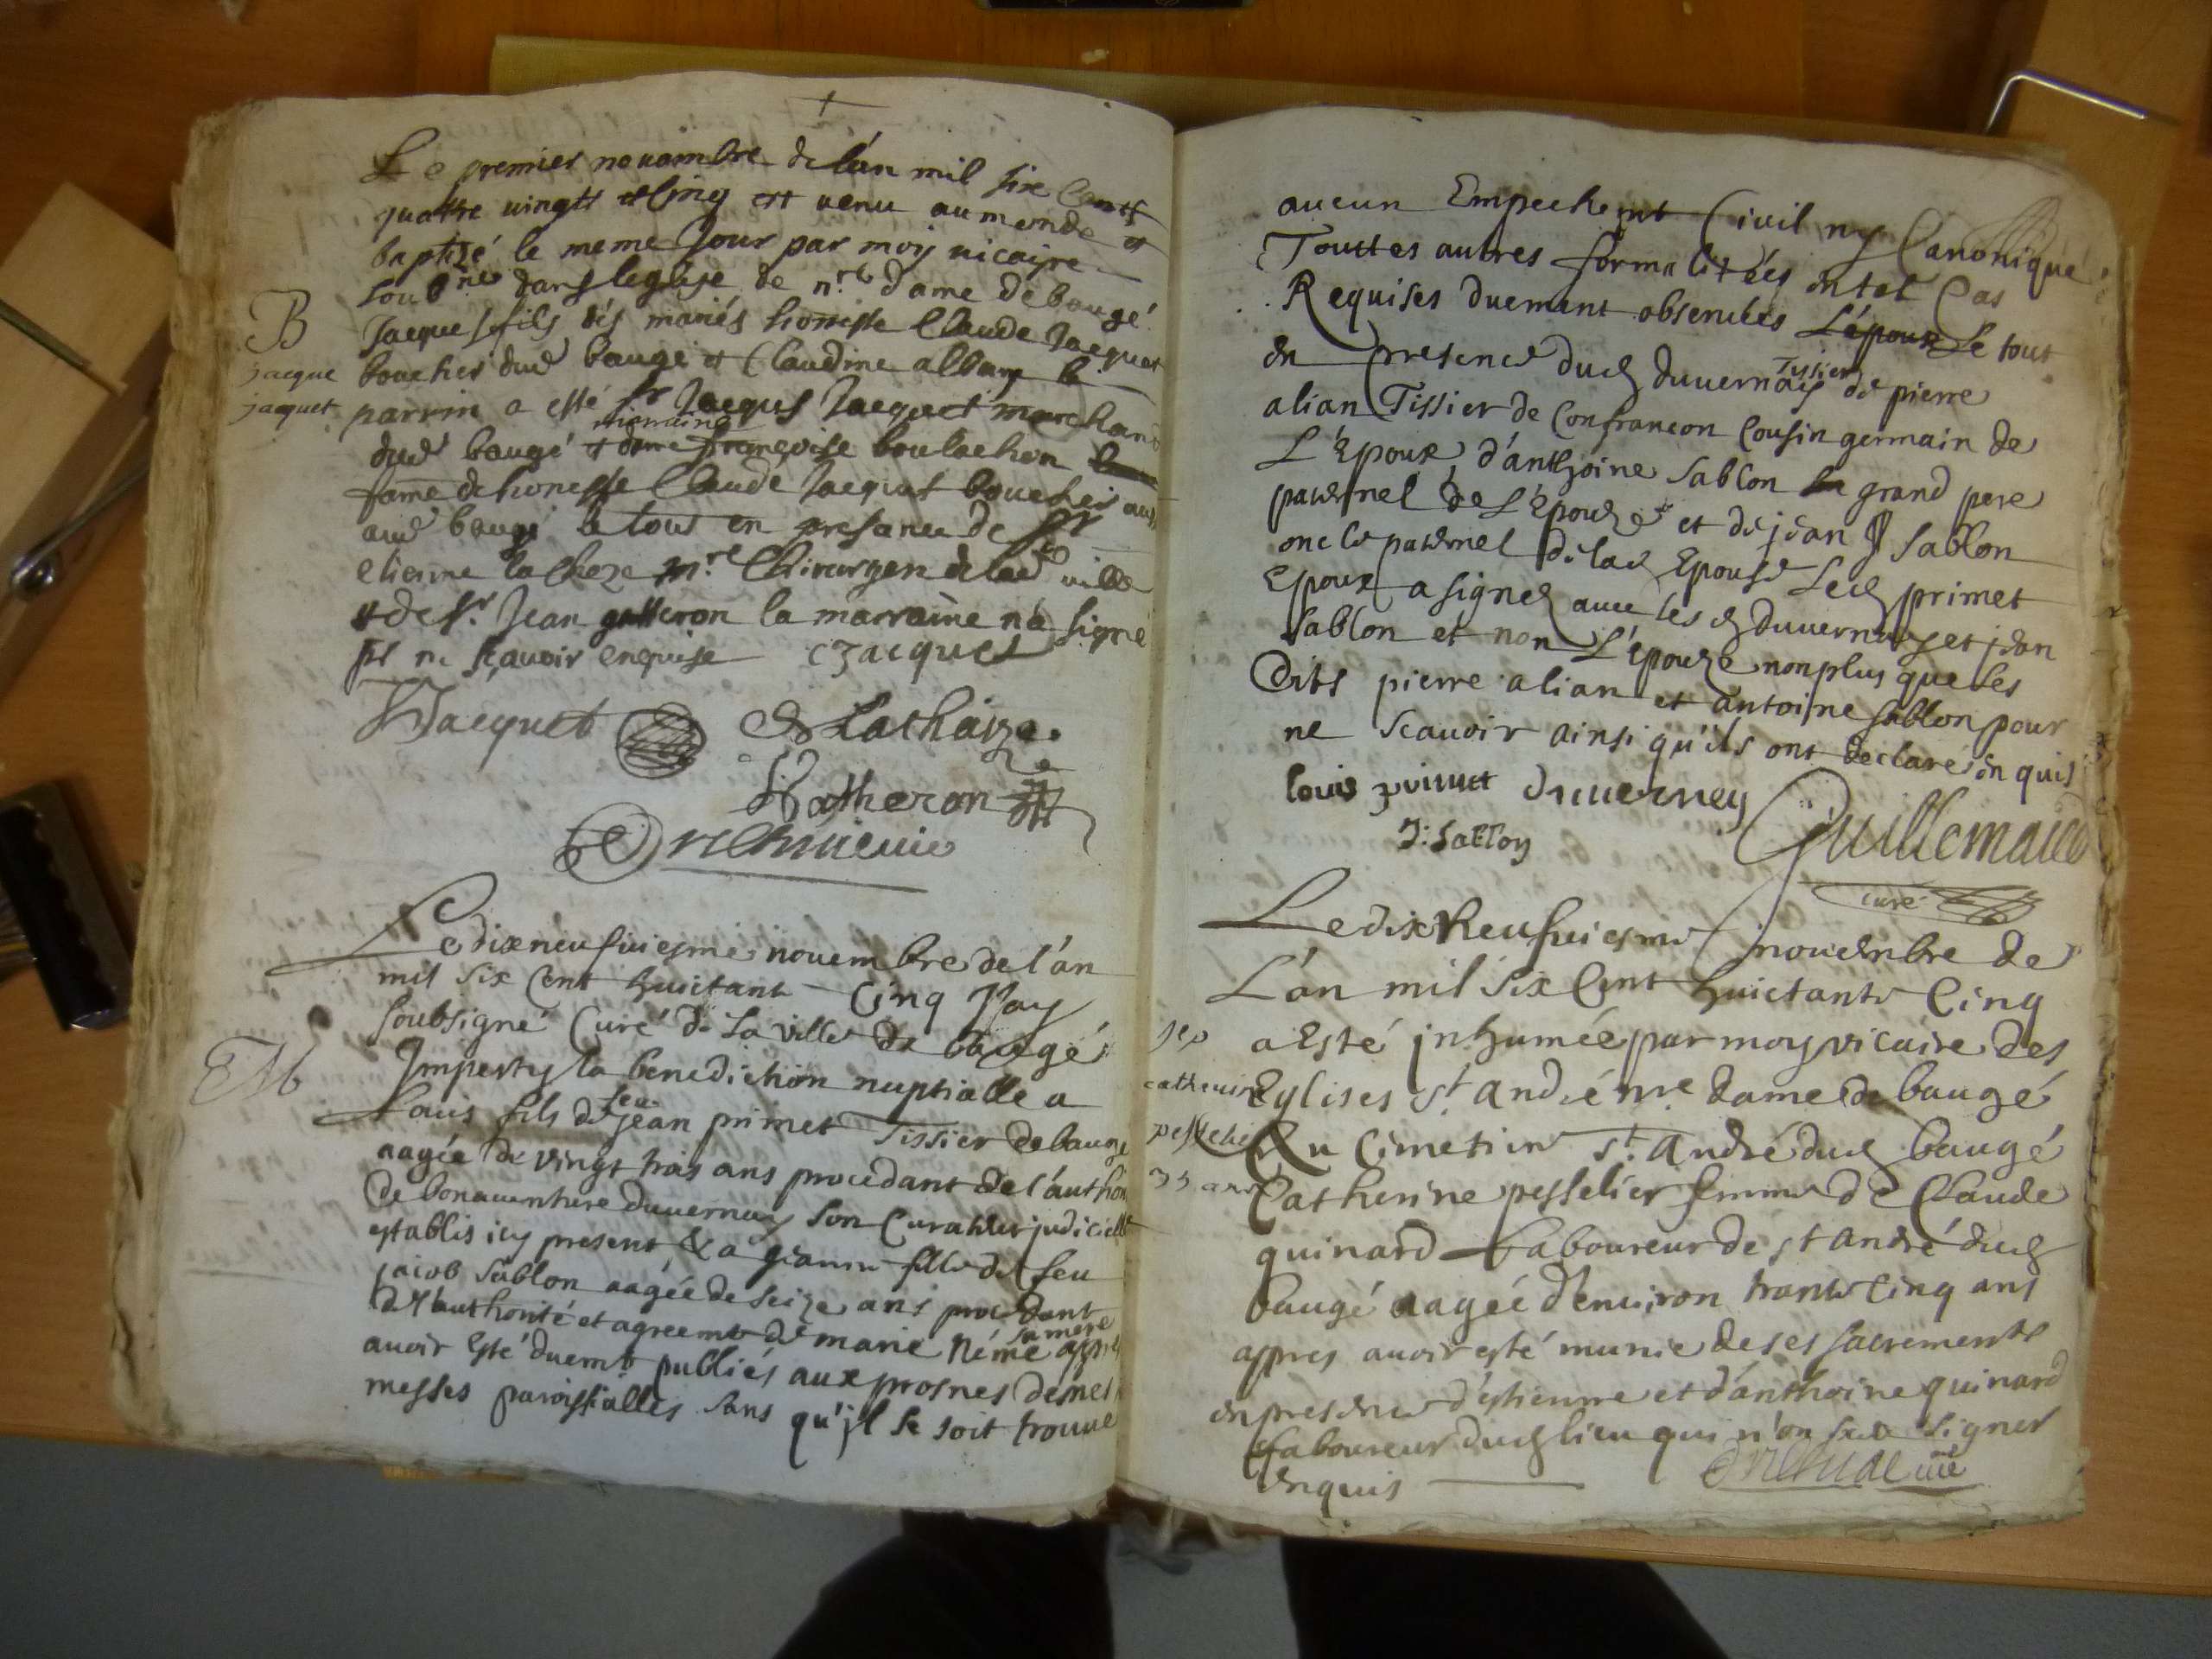 Le premier nouambre de l'an mil six Cents
quattre vingts et Cinq est venu au monde et
baptizé le meme Jour par moy vicaire
soubné dans leglise de nre dame de baugé
B
jacque
jacquet
Jacque fils des mariés honneste Claude Jacquet
boucher dud baugé et Claudine alban le
parrin a esté sr Jacques Jacquet marchand
marraine
dud baugé et françoise boulachon
fame de honeste Claude Jacquet boucher aus
aud baugé le tout en presance de sr
etienne la Cheze mre Chirurgen de lad ville
et de sr Jean gatteron la marraine n'a signé
pr ne sçavoir enquise C Jacquet
Jacquet Lathaize
Katheron
Le dixneufuiesme nouembre de l'an
mil six Cent huictant Cinq Jay
soubsigné Curé de La ville de baugé
M
Imperty la benediction nuptialle a
feu
Louis fils de jean primet Tissier de bauge
aagée de vingt trois ans procedant de l'autho
de bonauenture duuernay son Curateur judiciell
establis icy present & a jeanne fille de feu
jacob sablon aagée de seize ans procedant
de l'authorité et agreemt de marie Néme sa mere apres
auoir Esté duemt publiés aux prosnes de mes
messes paroissialles sans qu'jl se soit trouué
aucun Empechemt Ciuil ny Canonique
Touttes autres formalitéés en tel Cas
Requises duemant obseruées L'époux Le tout
Tissier
en presence dud duuernay de pierre
alian Tissier de Confrancon Cousin germain de
L'Epoux d'anthoine sablon grand pere
paternel de L'Epouze et de jean sablon
oncle paternel de lad Epouse Led primet
Epoux a signé auec les d duuernay et jean
Sablon et non L'épouze non plus que les
Dits pierre alian et antoine sablon pour
ne scauoir ainsi qu'ils ont declaré enquis
louis primet Duuerney
J: Sablon Guillemaud
curé
Le dix Neufuiesme nouembre de
L'an mil six Cent huictante Cinq
sep
catherine
pesselier
35 ans
a Esté jnhumée par moy vicaire des
Eglises st andré nre dame de baugé
Au Cimetiere st André dud baugé
Catherine pesselier femme de Claude
guinard Laboureur de st andré dud
baugé aagée d'enuiron trante Cinq ans
appres auoir esté munie de ses sacrements
en presence d'estienne et d'anthoine guinard
Laboureur dud lieu qui n'on sceu signer
enquis